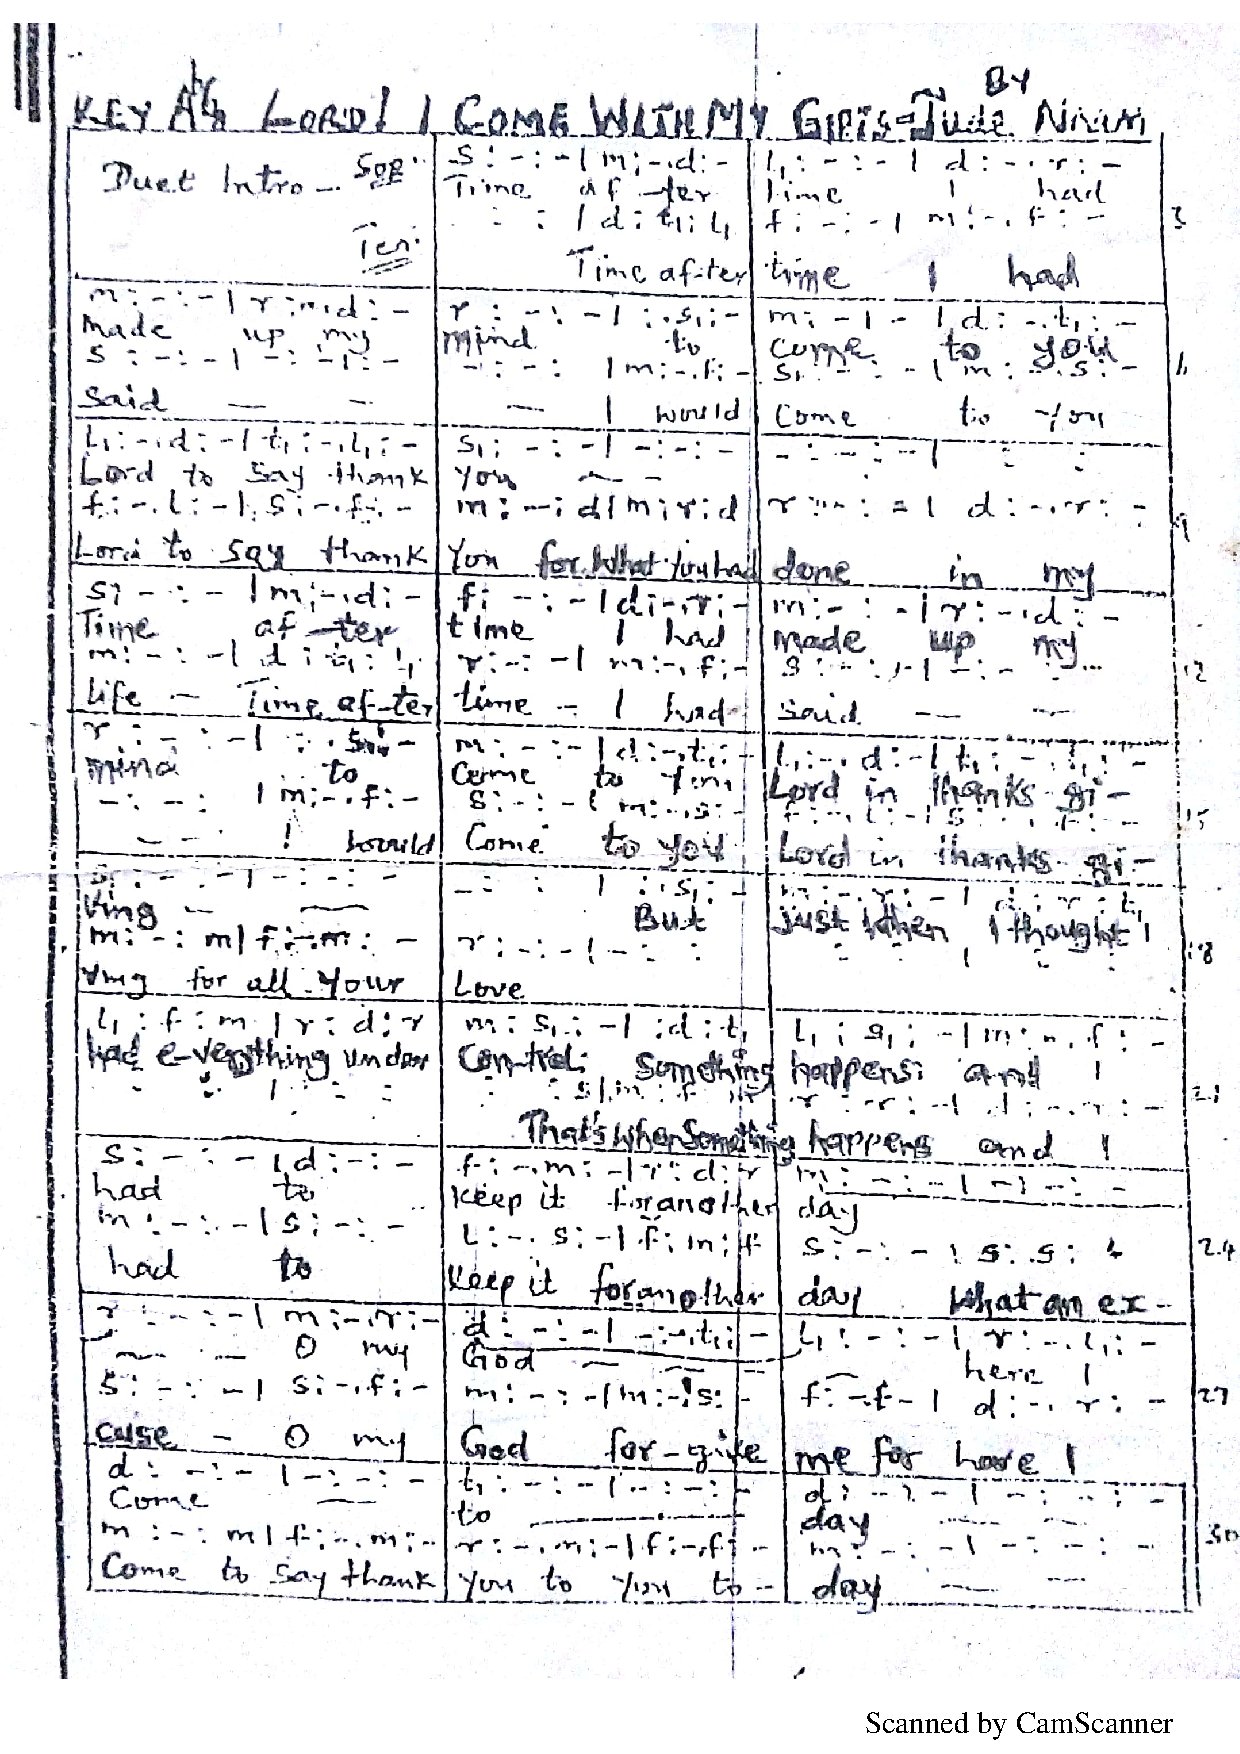 BY
KEY Ab LORD! I COME WITH MY GIFTS - Jude Nnam
Duet Intro - Sop. s : - : - | m : - . d : - l₁ : - : - | d : - . r : -
Time af-ter time I had
: : | d : t₁ : l₁ f : - : - | m : - . f : - 3
Ten.
Time af-ter time I had
m : - : - | r : m . d : - r : - : - | : . s₁ : - m : - | - | d : - . t₁ : -
made up my mind to come to you
s : - : - | - : - : - - : - : | m : - . f : - s : - : - | m : - . s : -
Said — - — I would Come to you
l₁ : - . d : - | t₁ : - . l₁ : - s₁ : - : - | - : - : - - : - : - | : :
Lord to say thank you —
f : - . l : - | s : - . f : - m : - : d | m : r : d r : - : - | d : - . r : - 9
Lord to say thank You for What You had done in my
s : - : - | m : - . d : - f : - : - | d : - . r : - m : - : - | r : - . d : -
Time af-ter time I had made up my
m : - : - | d : t₁ : l₁ r : - : - | m : - . f : - s : - : - | - : - : - 12
life — Time af-ter time - I had said — —
r : - : - | : . s₁ : - m : - : - | d : - . t₁ : - l₁ : - . d : - | t₁ : - . l₁ : -
mind to Come to you Lord in thanks gi-
- : - : | m : - . f : - s : - : - | m : - . s : - f : - . l : - | s : - . f : - 15
— - I would Come to you Lord in thanks gi-
s₁ : - : - | - : - : - - : : | : . s₁ : - m : - . r : - | d : r : t₁
ving — — But just when I thought I
m : - : m | f : - . m : - r : - : - | - : - : : : | : : 18
ving for all Your Love
l₁ : f : m | r : d : r m : s₁ : - | : d : t₁ l₁ : s₁ : - | m : - . f : -
had e-verything under control: Something happens: and I
: : | : : 21
That's when Something happens and I
s : - : - | d : - : - f : - . m : - | r : d : r m : - : - | - : - : -
had to keep it for another day
m : - : - | s : - : - l : - . s : - | f : m : f s : - : - | s : . s : 24
had to keep it for another day What an ex-
r : - : - | m : - . r : - d : - : - | - : - . t₁ : - l₁ : - : - | r : - . l₁ : -
— — O my God — — here I
s : - : - | s : - . f : - m : - : - | m : - . s : - f : - . f : - | d : - . r : - 27
cuse - O my God for-give me for here I
d : - : - | - : - : - t₁ : - : - | - : - : - d : - : - | - : - : -
Come — to — day — —
m : - : m | f : - . m : - r : - . m : - | f : - . f : - m : - : - | - : - : - 30
Come to say thank you to you to- day — —
Scanned by CamScanner